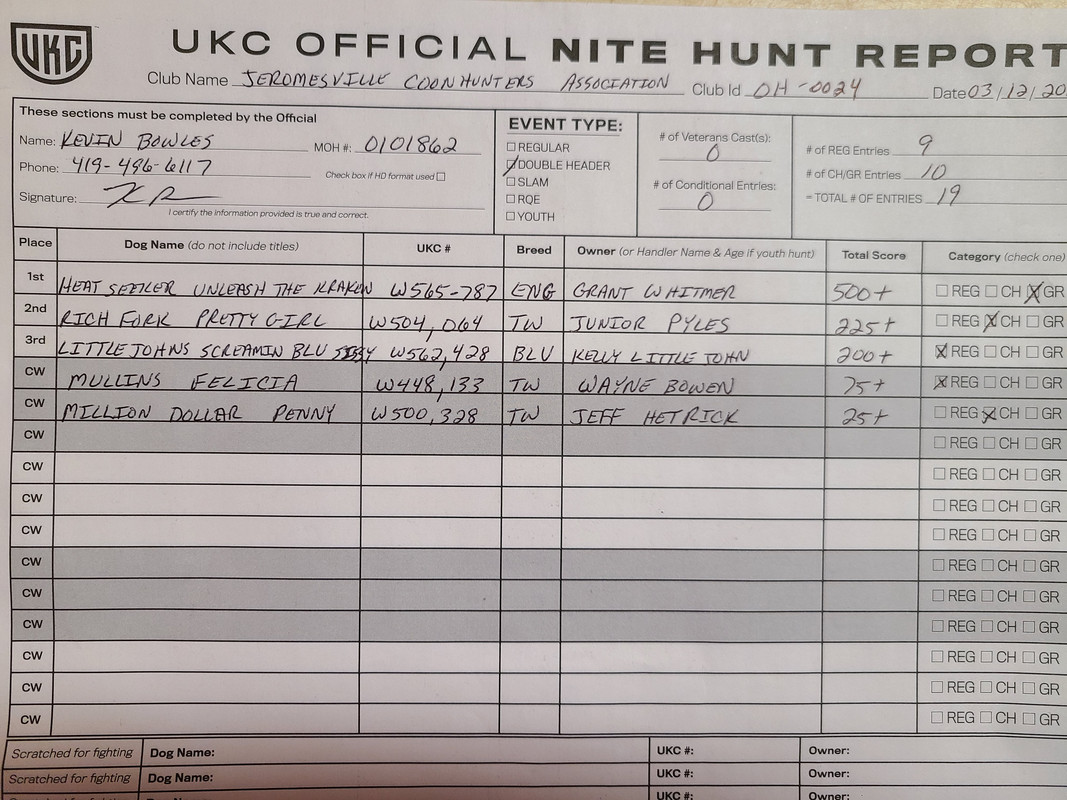 UKC UKC OFFICIAL NITE HUNT REPORT
Club Name JEROMESVILLE COONHUNTERS ASSOCIATION Club Id OH-0024 Date 03/12/20
These sections must be completed by the Official
Name: KEVIN BOWLES MOH #: 0101862
Phone: 419-496-6117 Check box if HD format used ☐
Signature:
I certify the information provided is true and correct.
EVENT TYPE:
☐ REGULAR
☑ DOUBLE HEADER
☐ SLAM
☐ RQE
☐ YOUTH
# of Veterans Cast(s):
0
# of Conditional Entries:
0
# of REG Entries 9
# of CH/GR Entries 10
= TOTAL # OF ENTRIES 19
Place Dog Name (do not include titles) UKC # Breed Owner (or Handler Name & Age if youth hunt) Total Score Category (check one)
1st HEAT SEEKER UNLEASH THE KRAKEN W565-787 ENG GRANT WHITMER 500+ ☐ REG ☐ CH ☒ GR
2nd RICH FORK PRETTY GIRL W504,064 TW JUNIOR PYLES 225+ ☐ REG ☒ CH ☐ GR
3rd LITTLEJOHNS SCREAMIN BLU SISSY W562,428 BLU KELLY LITTLEJOHN 200+ ☒ REG ☐ CH ☐ GR
CW MULLINS FELICIA W448,133 TW WAYNE BOWEN 75+ ☒ REG ☐ CH ☐ GR
CW MILLION DOLLAR PENNY W500,328 TW JEFF HETRICK 25+ ☐ REG ☒ CH ☐ GR
CW ☐ REG ☐ CH ☐ GR
CW ☐ REG ☐ CH ☐ GR
CW ☐ REG ☐ CH ☐ GR
CW ☐ REG ☐ CH ☐ GR
CW ☐ REG ☐ CH ☐ GR
CW ☐ REG ☐ CH ☐ GR
CW ☐ REG ☐ CH ☐ GR
CW ☐ REG ☐ CH ☐ GR
CW ☐ REG ☐ CH ☐ GR
CW ☐ REG ☐ CH ☐ GR
Scratched for fighting Dog Name: UKC #: Owner:
Scratched for fighting Dog Name: UKC #: Owner:
Scratched for fighting Dog Name: UKC #: Owner: